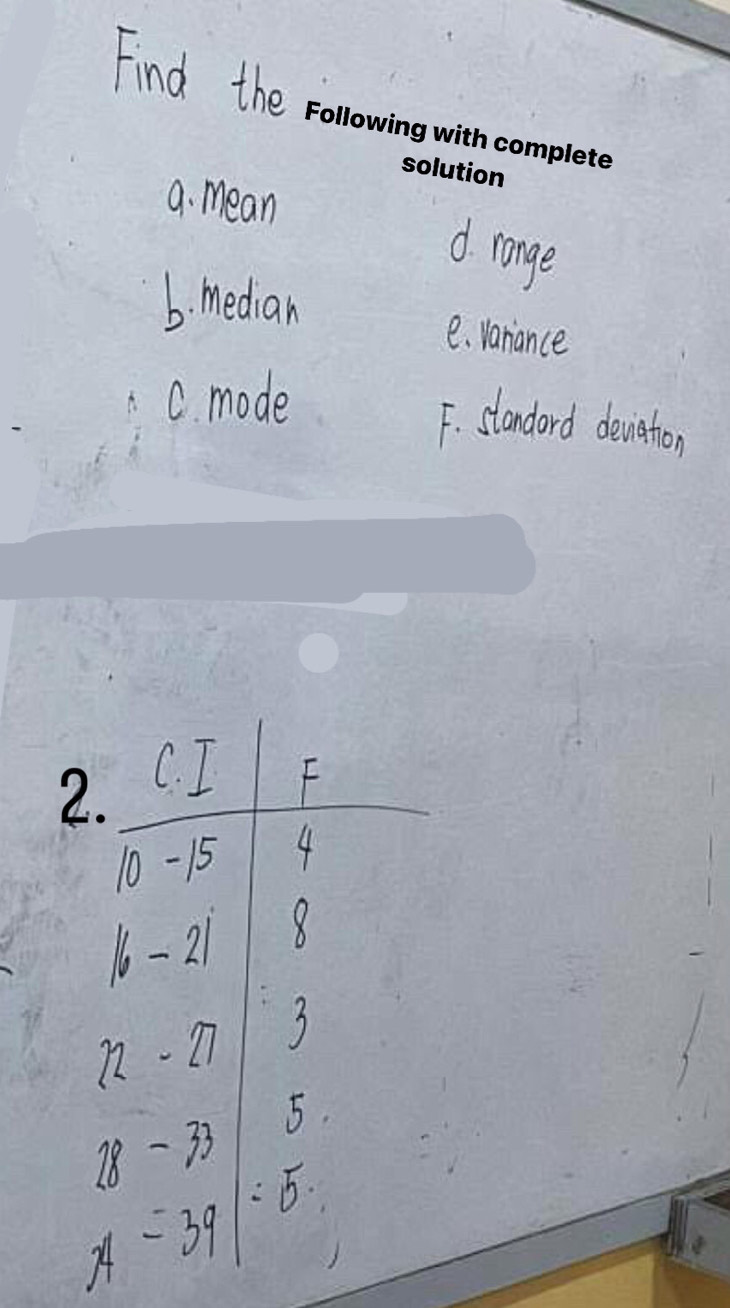 Find the Following with complete
solution
a. mean
d. range
b. median
e. variance
c. mode
F. standard deviation
2. C.I F
10 - 15 4
16 - 21 8
22 - 27 3
28 - 33 5
34 - 39 5